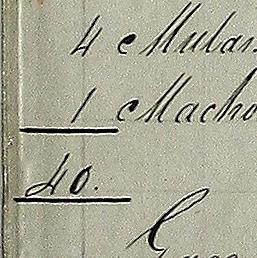 4 Mulas
1 Macho
40.